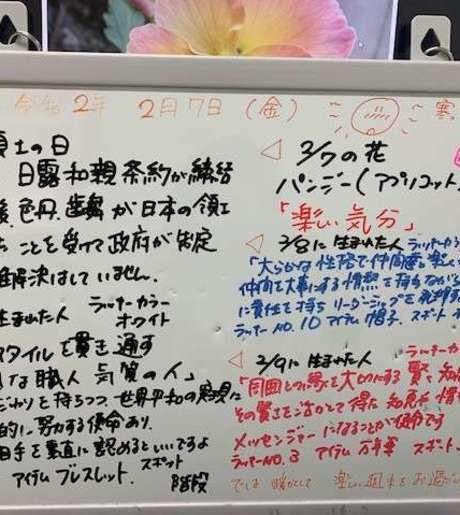 令和2年 2月7日 (金) 寒
領土の日
日露和親条約が締結
色丹、歯舞が日本の領土
ことを受けて政府が制定
解決はしていません.
生まれた人 ラッキーカラー
ホワイト
スタイルを貫き通す
な職人気質の人」
だわりを持ちつつ、世界平和の実現に
的に寄与する使命あり.
相手を素直に認めるといいですよ
アイテム ブレスレット. スポット
階段
◁ 2/7の花
パンジー(アプリコット
「楽しい気分」
◁ 2/8に生まれた人 ラッキーカラー
「大らかな性格で仲間と楽し
仲間を大事にする情熱を持ちながら
に責任を持ちリーダーシップを発揮す
ラッキーNO.10 アイテム 帽子. スポット
◁ 2/9に生まれた人 ラッキーカラー
「周囲との縁を大切にする賢
その賢さを活かして得た知恵や情
メッセンジャーになることが使命です
ラッキーNO.3 アイテム 万年筆 スポット.
では 暖かくして 楽しい週末をお過ごし